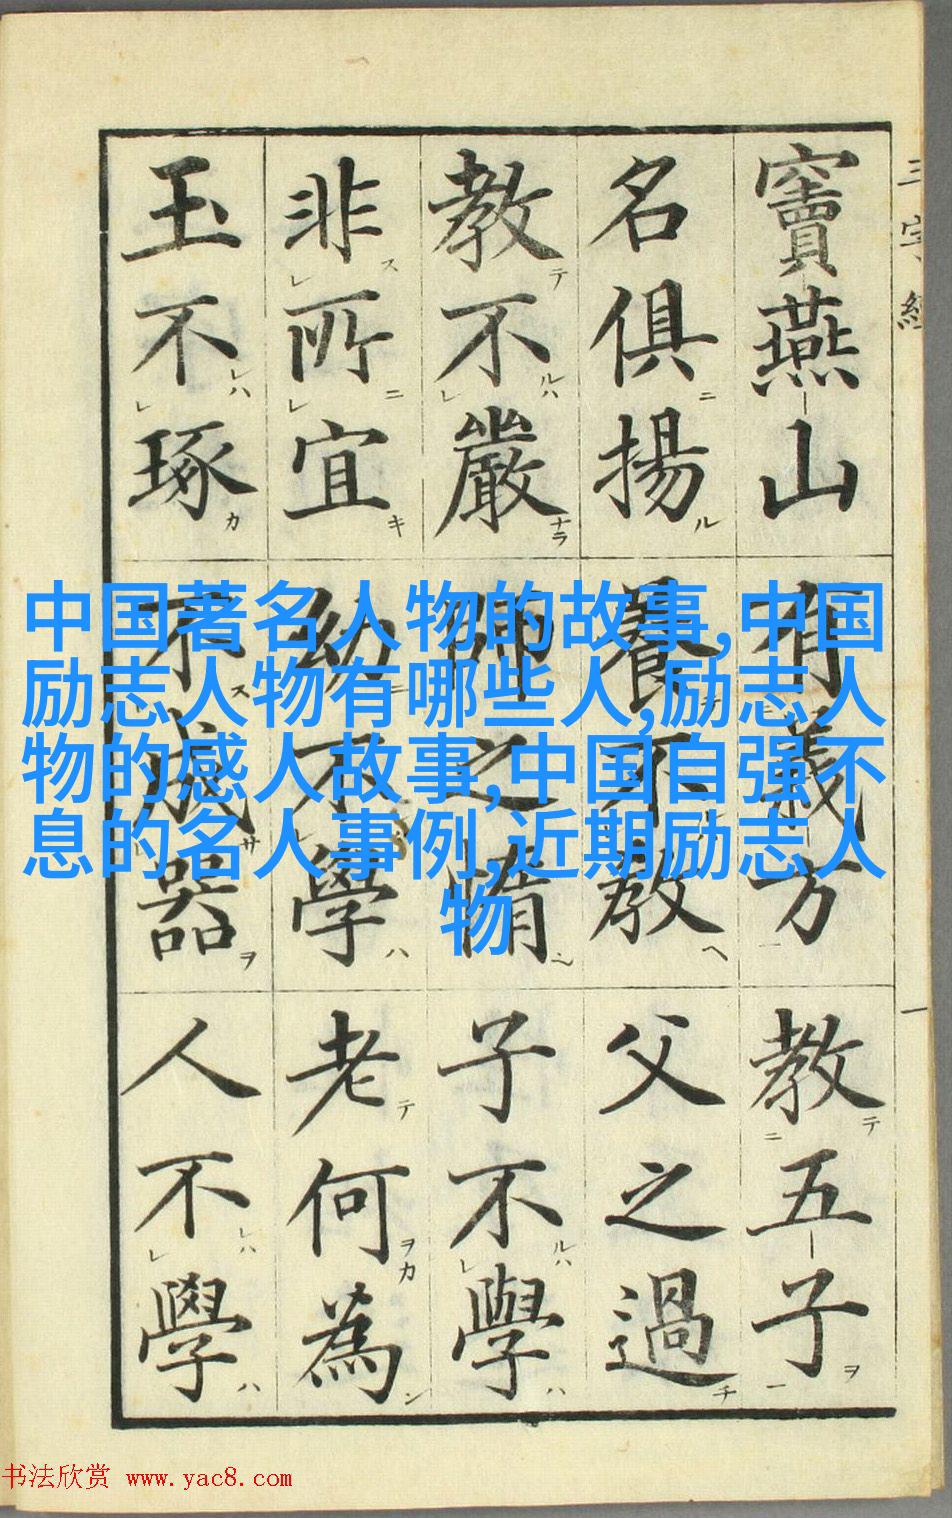 三字經 一
竇燕山有義方教五子
名俱揚養不教父之過
教不嚴師之惰子不學
非所宜幼不學老何為
玉不琢不成器人不學
中国著名人物的故事,中国
励志人物有哪些人,励志人
物的感人故事,中国自强不
息的名人事例,近期励志人
物
书法欣赏 www.yac8.com